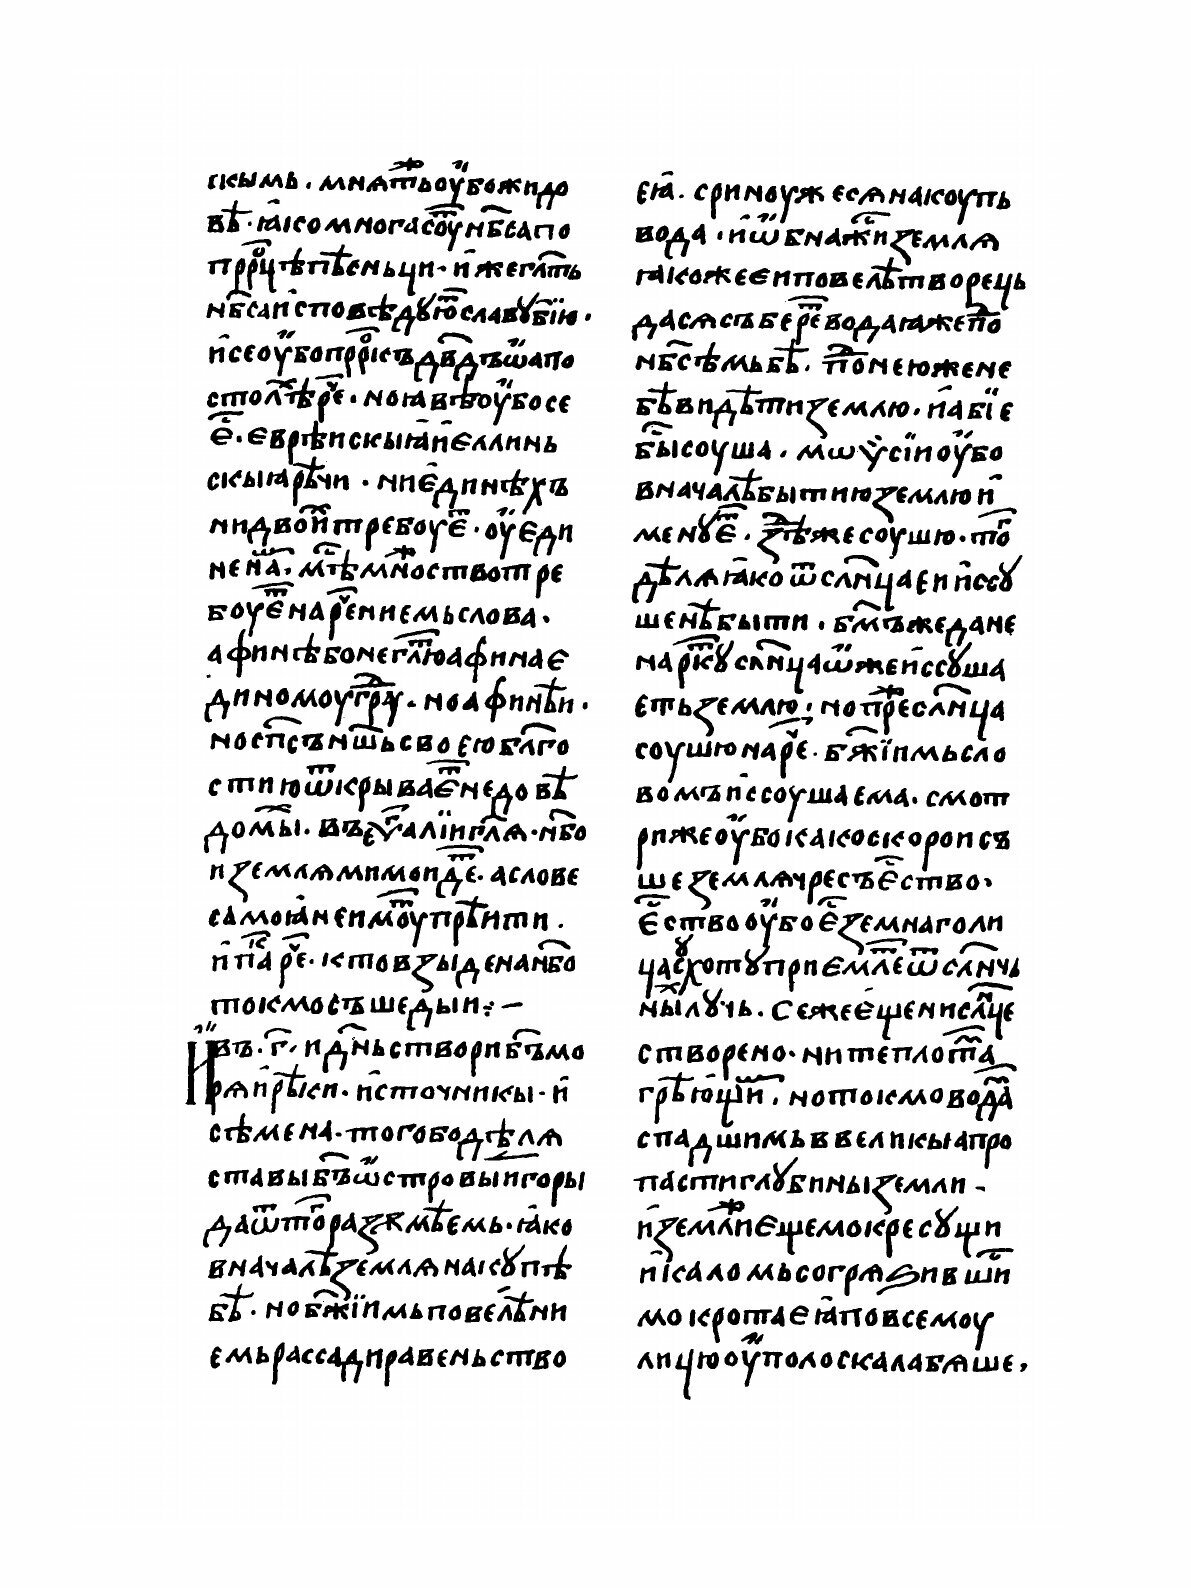 скымь. мнѧт҃ьоу҆божидо
вѣ·ꙗ҆комногасѹⷮнб҃сапо
прⷪ҇рцѣпѣсньци·и҆жегл҃ть
нб҃саи҆споведꙋюⷮславꙋбжїю·
и҆сеоу҆бопрⷪ҇ркъдв҃дъѿапо
столⷯѣре҇ⷱ·ноꙗвѣоу҆босе
є҇ⷭ·єврѣискыꙗи҆єллинь
скыꙗрѣчи·ниє҆динѣхъ
нидвоиⷯтребоує҇ⷮ·оу҆еди
нена·мⷭ҇ѣмноⷤствотре
боує҇ⷮнаре҇ⷱниемьслова·
афинѣбонегл҃юⷮафинає
диномоуграⷣу·ноафинѣи·
носп҃съншь҃своеюблг҃о
стиюѿкрываєⷮнедовѣ
домы·въеѵⷢ҇алїигл҃ѧ·нб҃о
иземлѧмимоидеⷮ·аслове
самоꙗнеимоуⷮпрѣити.
и҆паⷦ҇ре҇ⷱ·ктовзыденанб҃о
токмосъшедыи:–
И҆въ·г҃·идн҃ьствориб҃ъмо
рѧи҆рѣки·и҆сточникы·и҆
сѣмена·тогободѣлѧ
ставыб҃ъѿстровыигоры
даѿтоⷢ҇разꙋмѣемь·ꙗ҆ко
вначалѣземлѧнакꙋпѣ
бѣ·нобж҃їимьповелѣни
емьрассадиравеньство
еꙗ҆.сриноужесѧнакоупь
вода·и҆ѿбнажⷭ҇иземлѧ
ꙗкожееєиповелѣтворець
дасѧсъбереⷮводаꙗжепоⷣ
нб҃сѣмьбѣ.поⷣнеюжене
бѣвидѣтиземлю.и҆абїе
бы҇ⷭсоуша.мѡѷсїиоу҆бо
вначалѣбытиюземлюи҆
менꙋеⷮ.здⷣѣжесоушю·тоⷢ҇
дѣлѧꙗ҆коѿслн҃цаеии҆ссꙋ
шенѣбыти.бм҃ъжедане
нарⷦ҇ꙋслн҃цаѿжеи҆ссꙋша
етьземлю,нопреⷤслн҃ца
соушюнаре҇ⷱ.бж҃їимьсло
вомъи҆ссоушаема.смот
рижеоу҆бокакоскорописъ
шеземлѧчресъе҇ⷭство·
е҇ⷭствооу҆боє҇ⷭземнаголи
цасꙋхотꙋприемлеⷮѿслн҃чь
ныⷯлꙋчь.Сежеє҆щенислн҃це
створено·нитеплотаⷨ
грѣющиⷨ,нотокмоводаⷨ
спадшимьввеликыапро
пастиглꙋбиныземли–
и҆землиⷤєщемокресꙋщи
и҆каломьсогрѧѕившиⷭ
мокротаеꙗ҆повсемоу
лицюоу҆полоскалабѧше,